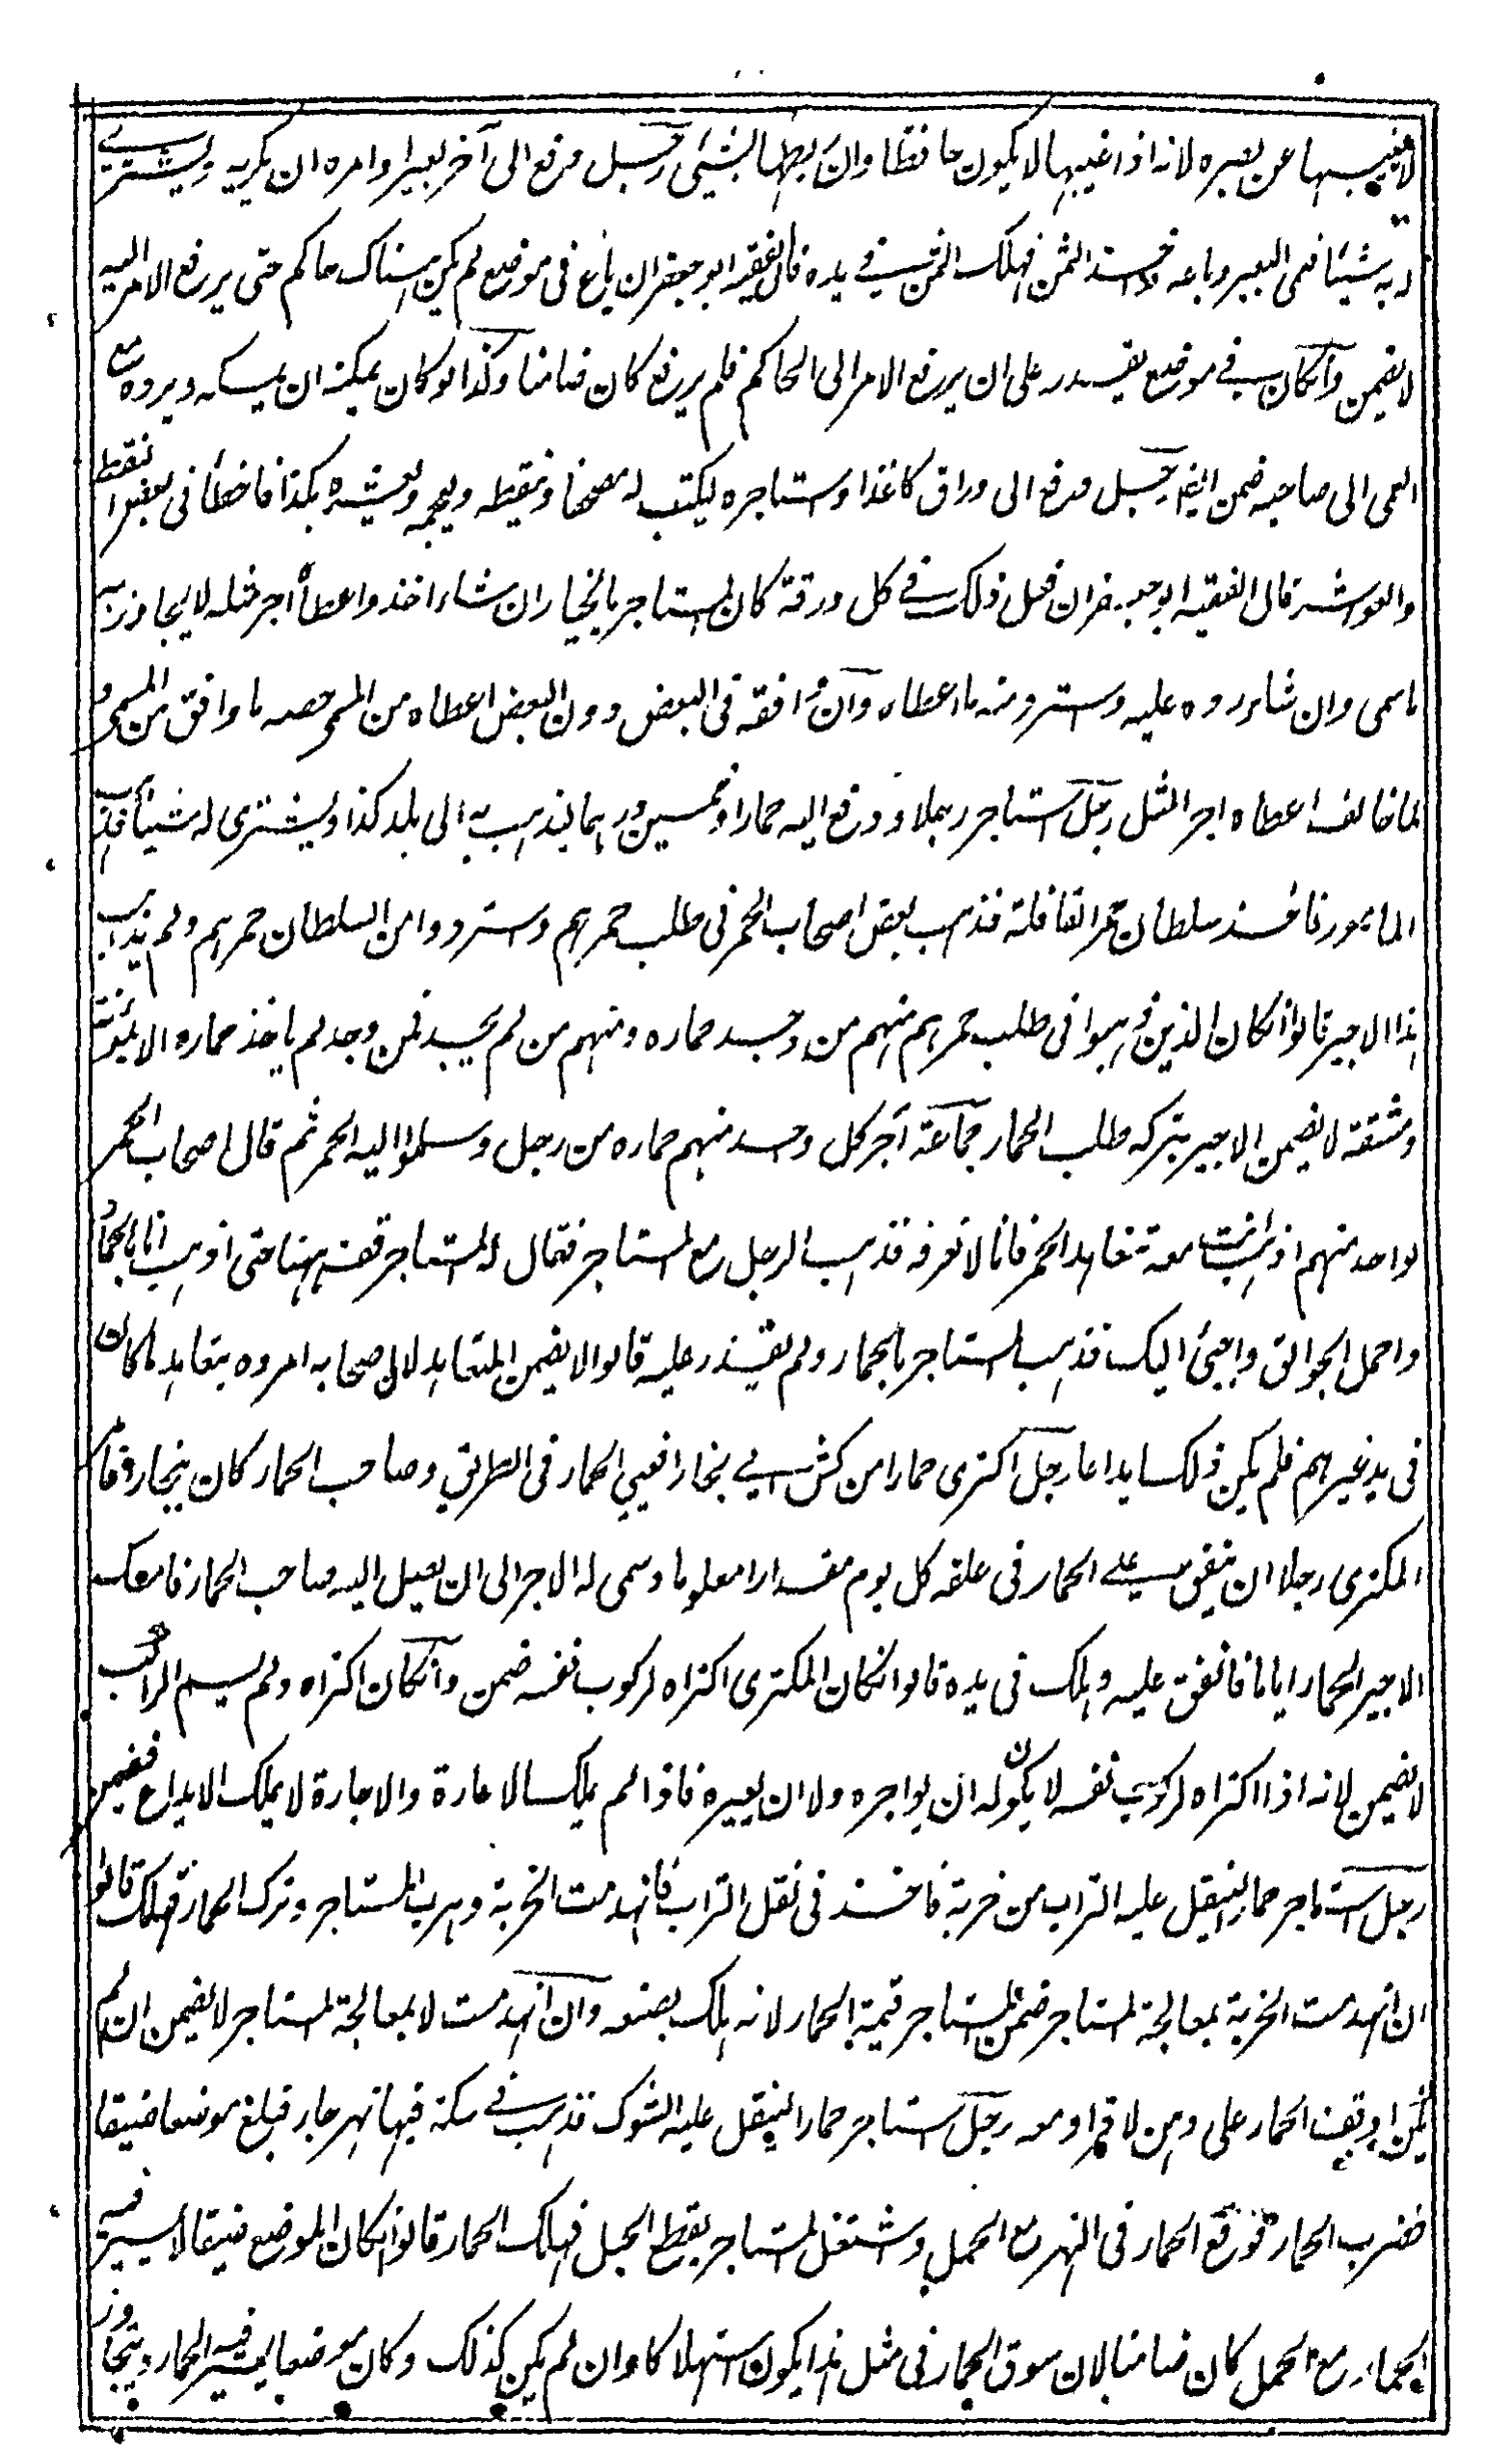 لا يغيبها عن بصره لانه اذا غيبها لا يكون حافظا وان ربطها بشيء رجل دفع الى آخر بعيرا وامره ان يكريه ويشترى
له به شيئا فعمى البعير وباعه واخذ الثمن فهلك الثمن في يده قال الفقيه ابو جعفر ان باع في موضع لم يكن هناك حاكم حتى يرفع الامر اليه
لا يضمن وان كان في موضع يقدر على ان يرفع الامر الى الحاكم فلم يرفع كان ضامنا وكذا لو كان يمكنه ان يمسكه ويرده مع
العمى الى صاحبه ضمن ايضا رجل دفع الى وراق كاغذا واستاجره ليكتب له مصحفا وينقطه ويعجمه ويعشره بكذا فاخطأ في بعض النقط
والعواشر قال الفقيه ابو جعفر ان فعل ذلك في كل ورقة كان المستاجر بالخيار ان شاء اخذ واعطاه اجر مثله لا يجاوز به
ما سمى وان شاء رده عليه واسترد منه ما اعطاه وان وافقه في البعض دون البعض اعطاه من المسمى حصه ما وافق من المسمى و
لما خالف اعطاه اجر المثل رجل استاجر رجلا ودفع اليه حمارا وخمسين درهما ليذهب به الى بلد كذا ويشترى له شيئا فذهب
المامور فاخذ سلطان حمر القافلة فذهب بعض اصحاب الحمر في طلب حمرهم واستردوا من السلطان حمرهم ولم يذهب
هذا الاجير قالوا ان كان الذين ذهبوا في طلب حمرهم منهم من وجد حماره ومنهم من لم يجد فمن وجد لم ياخذ حماره الا بمؤنت
ومشقة لا يضمن الاجير بتركه طلب الحمار جماعة آجر كل واحد منهم حماره من رجل وسلموا اليه الحمر ثم قال اصحاب الحمر
لواحد منهم اذهب انت معه تتعاهد الحمر فانا لا نعرفه فذهب الرجل مع المستاجر فقال له المستاجر قف ههنا حتى اذهب انا بالحمار
واحمل الجوالق واجئ اليك فذهب المستاجر بالحمار ولم يقدر عليه قالوا لا يضمن المتعاهد لان اصحابه امروه بتعاهد ما كان
في يد غيرهم فلم يكن ذلك ايداعا رجل اكترى حمارا من كش الى بخارا فعيي الحمار في الطريق وصاحب الحمار كان ببخارا فامر
المكترى رجلا ان ينفق على الحمار في علفه كل يوم مقدارا معلوما وسمى له الاجر الى ان يصل اليه صاحب الحمار فامسك
الاجير الحمار اياما فانفق عليه وهلك في يده قالوا ان كان المكترى اكتراه لركوب نفسه ضمن وان كان اكتراه ولم يسم الراكب
لا يضمن لانه اذا اكتراه لركوب نفسه لا يكون له ان يواجره ولا ان يعيره فاذا لم يملك الاعارة والاجارة لا يملك الايداع فيضمن
رجل استاجر حمارا لينقل عليه التراب من خربة فاخذ في نقل التراب فانهدمت الخربة وهرب المستاجر وترك الحمار فهلك قالوا
ان انهدمت الخربة بمعالجة المستاجر ضمن المستاجر قيمة الحمار لانه هلك بصنعه وان انهدمت لا بمعالجة المستاجر لا يضمن ان لم
يكن اوقف الحمار على وهن لا قراومه رجل استاجر حمارا لينقل عليه الشوك فذهب في سكة فيها نهر جار فبلغ موضعا ضيقا
فضرب الحمار فوقع الحمار في النهر مع الحمل واشتغل المستاجر بقطع الحبل فهلك الحمار قالوا ان كان الموضع ضيقا لا يسير فيه
الحمار مع الحمل كان ضامنا لان سوق الحمار في مثل هذا يكون استهلاكا وان لم يكن كذلك وكان موضعا يسير فيه الحمار ويتجاوز